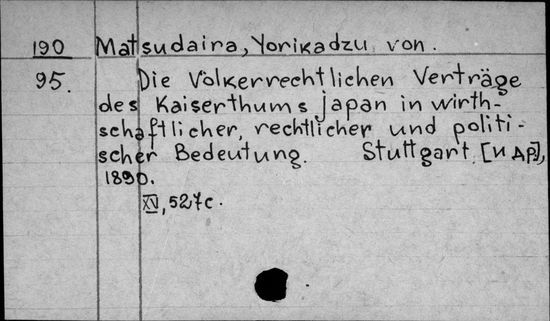 190 Matsudaira, Yorikadzu von.
95. Die Völkerrechtlichen Verträge
des Kaiserthums japan in wirth-
schaftlicher, rechtlicher und politi-
scher Bedeutung. Stuttgart [и др],
1890.
XV, 527c.